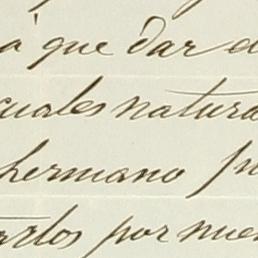 á que dar
cuales natura
hermano
por nue